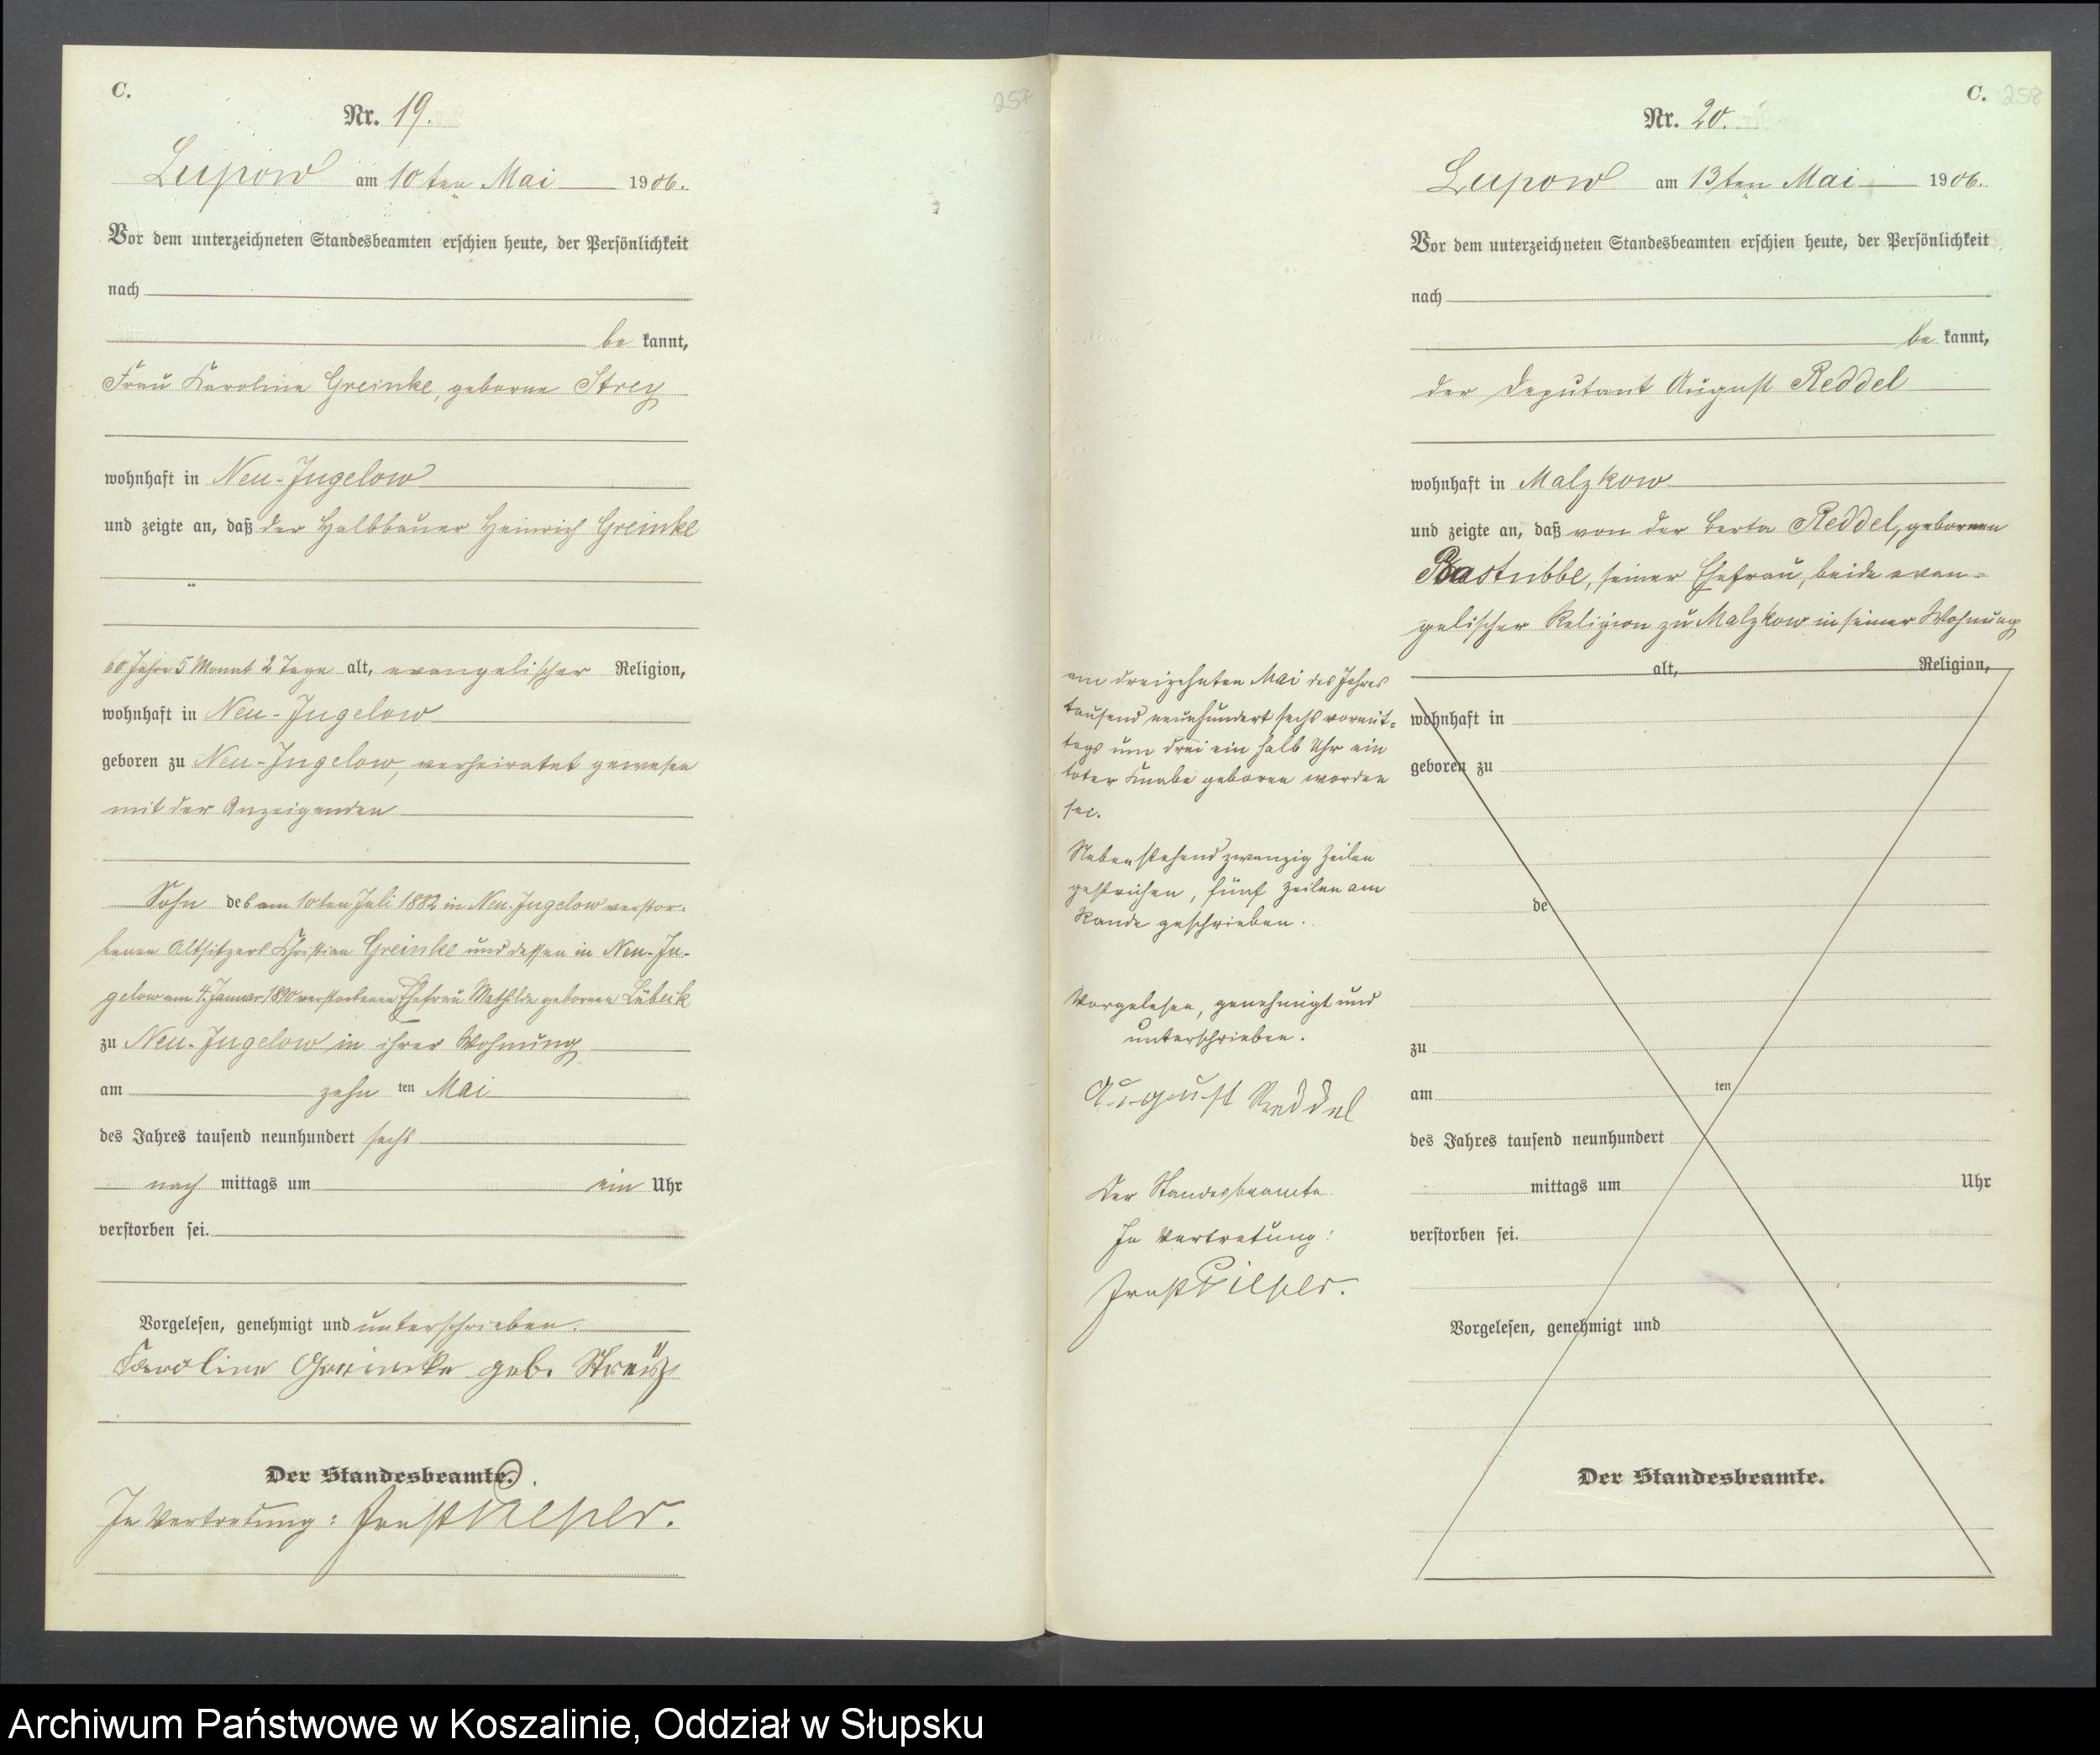 C.
257
Nr. 19.
Lupow am 10ten Mai 1906.
Vor dem unterzeichneten Standesbeamten erschien heute, der Persönlichkeit
nach
be kannt,
Frau Karoline Greinke, geborne Strey
wohnhaft in Neu-Jugelow
und zeigte an, daß der Halbbauer Heinrich Greinke
60 Jahre 5 Monat 2 Tage alt, evangelischer Religion,
wohnhaft in Neu-Jugelow
geboren zu Neu-Jugelow, verheiratet gewesen
mit der Anzeigenden
Sohn des am 10ten Juli 1882 in Neu-Jugelow verstor-
benen Altsitzers Christian Greinke und dessen in Neu-Ju-
gelow am 4. Januar 1890 verstorbenen Ehefrau Mathilde geborenen Lübeck
zu Neu-Jugelow in ihrer Wohnung
am zehn ten Mai
des Jahres tausend neunhundert sechs
nach mittags um ein Uhr
verstorben sei.
Vorgelesen, genehmigt und unterschrieben.
Karoline Greinke geb. Streÿ
Der Standesbeamte.
In Vertretung: Ernst
C. 258
Nr. 20.
Lupow am 13ten Mai 1906.
Vor dem unterzeichneten Standesbeamten erschien heute, der Persönlichkeit
nach
be kannt,
der Deputant August Reddel
wohnhaft in Malzkow
und zeigte an, daß von der Berta Reddel, gebornen
Bastubbe, seiner Ehefrau, beide evan-
gelischer Religion zu Malzkow in seiner Wohnung
alt, Religion,
wohnhaft in
geboren zu
de
zu
am ten
des Jahres tausend neunhundert
mittags um Uhr
verstorben sei.
Vorgelesen, genehmigt und
Der Standesbeamte.
am dreizehnten Mai des Jahres
tausend neunhundert sechs vormit-
tags um drei ein halb Uhr ein
toter Knabe geboren worden
sei.
Nebenstehend zwanzig Zeilen
gestrichen, fünf Zeilen am
Rande geschrieben.
Vorgelesen, genehmigt und
unterschrieben.
August Reddel
Der Standesbeamte.
In Vertretung:
Ernst
Archiwum Państwowe w Koszalinie, Oddział w Słupsku